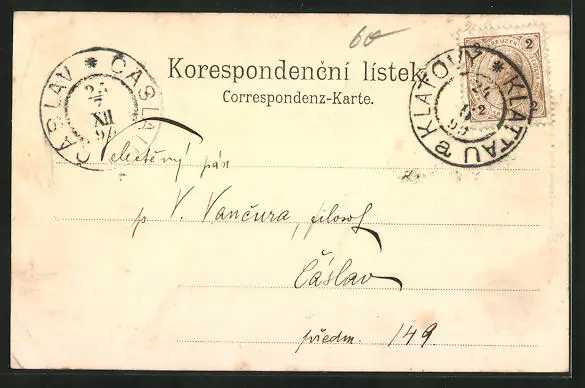 60
Korespondenční lístek
Correspondenz-Karte.
2 KREUZER 2
2
ČÁSLAV * ČASLAU
25
XII
KLATOVY * KLATTAU
24
12
Velectěný pán
p V. Vančura, filosof
Čáslav
předm. 149